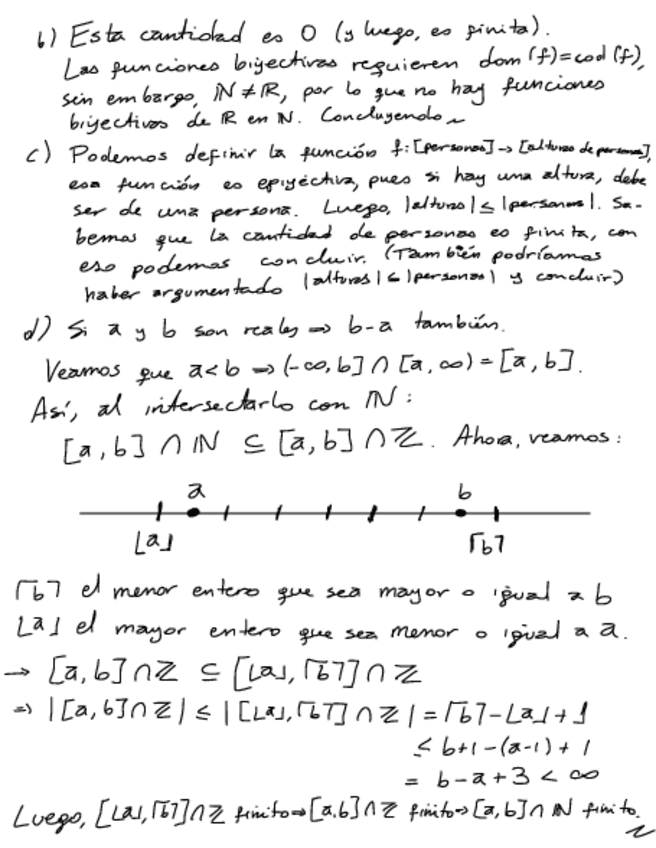 b) Esta cantidad es 0 (y luego, es finita).
Las funciones biyectivas requieren dom(f)=cod(f),
sin embargo, ℕ≠ℝ, por lo que no hay funciones
biyectivas de ℝ en ℕ. Concluyendo
c) Podemos definir la función f:[personas]→[alturas de personas],
esa función es epiyectiva, pues si hay una altura, debe
ser de una persona. Luego, |alturas|≤|personas|. Sa-
bemos que la cantidad de personas es finita, con
eso podemos concluir. (También podríamos
haber argumentado |alturas|≤|personas| y concluir)
d) Si a y b son reales ⇒ b-a también.
Veamos que a<b ⇒ (-∞,b]∩[a,∞)=[a,b].
Así, al intersectarlo con ℕ:
[a,b]∩ℕ ⊆ [a,b]∩ℤ. Ahora, veamos:
a b
⌊a⌋ ⌈b⌉
⌈b⌉ el menor entero que sea mayor o igual a b
⌊a⌋ el mayor entero que sea menor o igual a a.
→ [a,b]∩ℤ ⊆ [⌊a⌋,⌈b⌉]∩ℤ
⇒ |[a,b]∩ℤ| ≤ |[⌊a⌋,⌈b⌉]∩ℤ| = ⌈b⌉-⌊a⌋+1
≤ b+1-(a-1)+1
= b-a+3 < ∞
Luego, [⌊a⌋,⌈b⌉]∩ℤ finito⇒[a,b]∩ℤ finito⇒[a,b]∩ℕ finito.